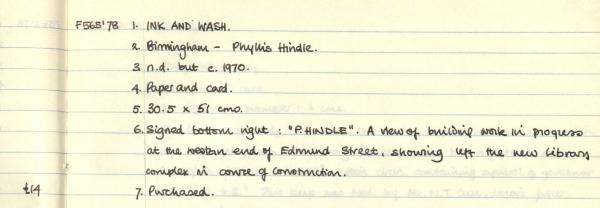 F565'78 1. INK AND WASH.
2. Birmingham - Phyllis Hindle.
3. n.d. but c. 1970.
4. Paper and card.
5. 30.5 x 51 cms.
6. Signed bottom right : "P. HINDLE". A view of building work in progress
at the western end of Edmund Street, showing left the new Library
complex in course of construction.
£14 7. Purchased.